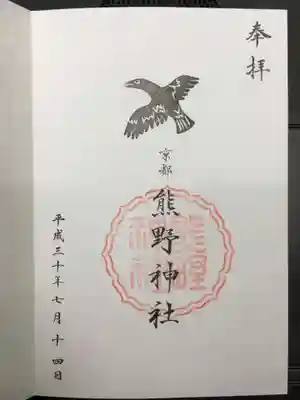 奉拝
京都
熊野神社
平成三十年七月十四日